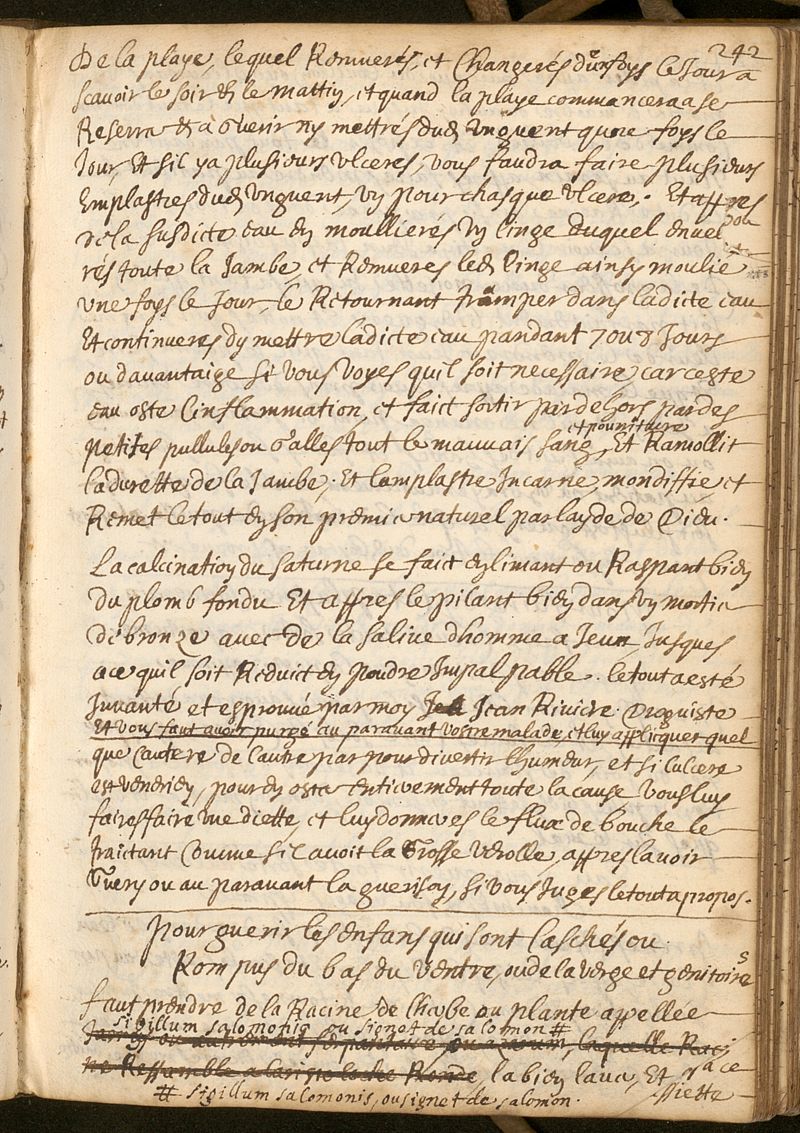 242
De la playe, lequel Remueres, et Changerés d'un foys le Jour a
scavoir le soir & le mattin, et quand la playe commancera a se
Reserrer & a Guerir ny mettrés dud unguent qune foys le
Jour, Et sil ya plusieurs ulceres, vous faudra faire plusieurs
Emplastres dud unguent, un pour chasque ulcere. Et appres
de la susdicte eau en moullierés un linge duquel envelop
rés toute la Jambe, et Remueres led linge ainsy moulie
une foys le Jour, le Retournant tramper dans ladicte eau
Et continueres dy mettre ladicte eau pandant 7 ou 8 Jours
ou davantaige si vous voyes quil soit necessaire, car ceste
eau oste linflammation, et faict sortir par dehors par des
et pourriture
petites pullules ou Galles tout le mauvais sang, Et Ramollit
la durette de la Jambe. Et lamplastre Incarne, mondiffie, et
Remet le tout en son premier naturel par layde de Dieu.
La calcination du saturne se faict en limant ou Raspant bien
du plomb fondu Et appres le pilant bien dans un mortier
de bronze avec de la salive dhomme a Jeun, Jusques
a ce quil soit Reduict en poudre Impalpable. le tout a esté
Invanté et esprouvé par moy Jean Riviere. Droguiste
Et vous faut avoir purgé au paravant vostre malade, et luy applicquer quel
que Cautere de lautre part pour divertir lhumeur, et si lulcere
est venerien, pour en oster entierement toute la cause vous luy
faires faire une diette, et luy donneres le flux de bouche le
traictant Comme sil avoit la Grosse verolle, appres lavoir
Guery ou au paravant la guerison, si vous Juges le tout a propos.
Pour guerir les enfans qui sont laschés ou
Rompus du bas du ventre, ou de la verge et genitoires
faut prendre de la Racine de lherbe ou plante appellée
sigillum salomonis ou signet de salomon #
laquelle Raci
ne Ressemble a la Ronde la bien laver, Et race
# sigillum salomonis, ou signet de salomon.
ssiette